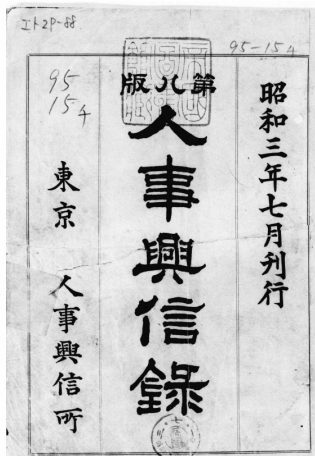 エト2P-88
95-154
95
154
昭和三年七月刊行
第八版
人事興信錄
東京 人事興信所